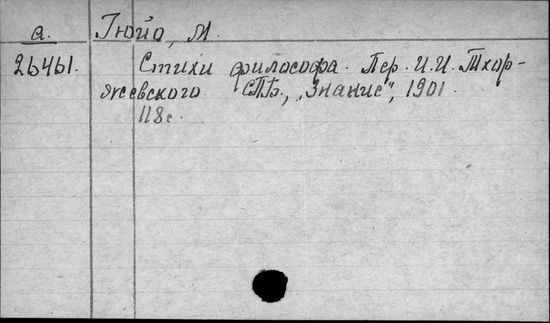 а. Гюйо, М.
26461. Стихи философа. Пер. И.И. Тхор-
жевского. СПб., „Знание", 1901.
118с.